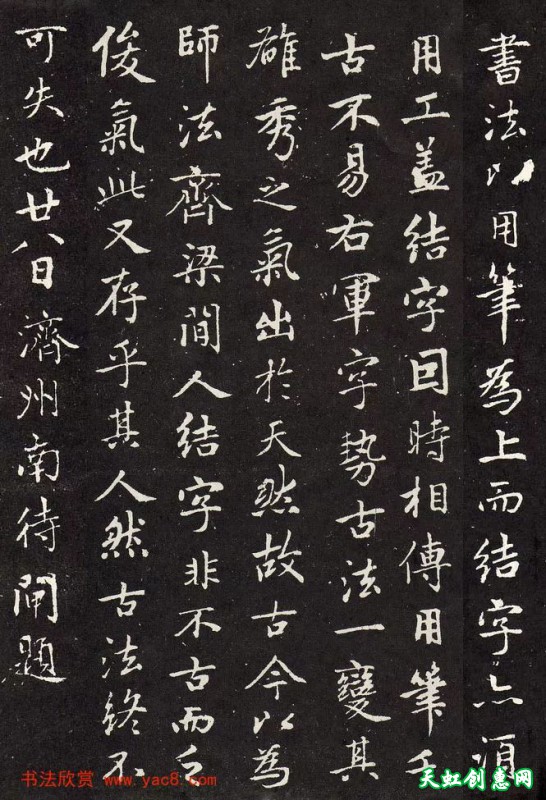 書法以用筆為上而結字亦須
用工蓋結字因時相傳用筆千
古不易右軍字勢古法一變其
雄秀之氣出於天然故古今以為
師法齊梁間人結字非不古而乏
俊氣此又存乎其人然古法終不
可失也廿八日濟州南待閘題
书法欣赏 www.yac8.com
天虹创惠网